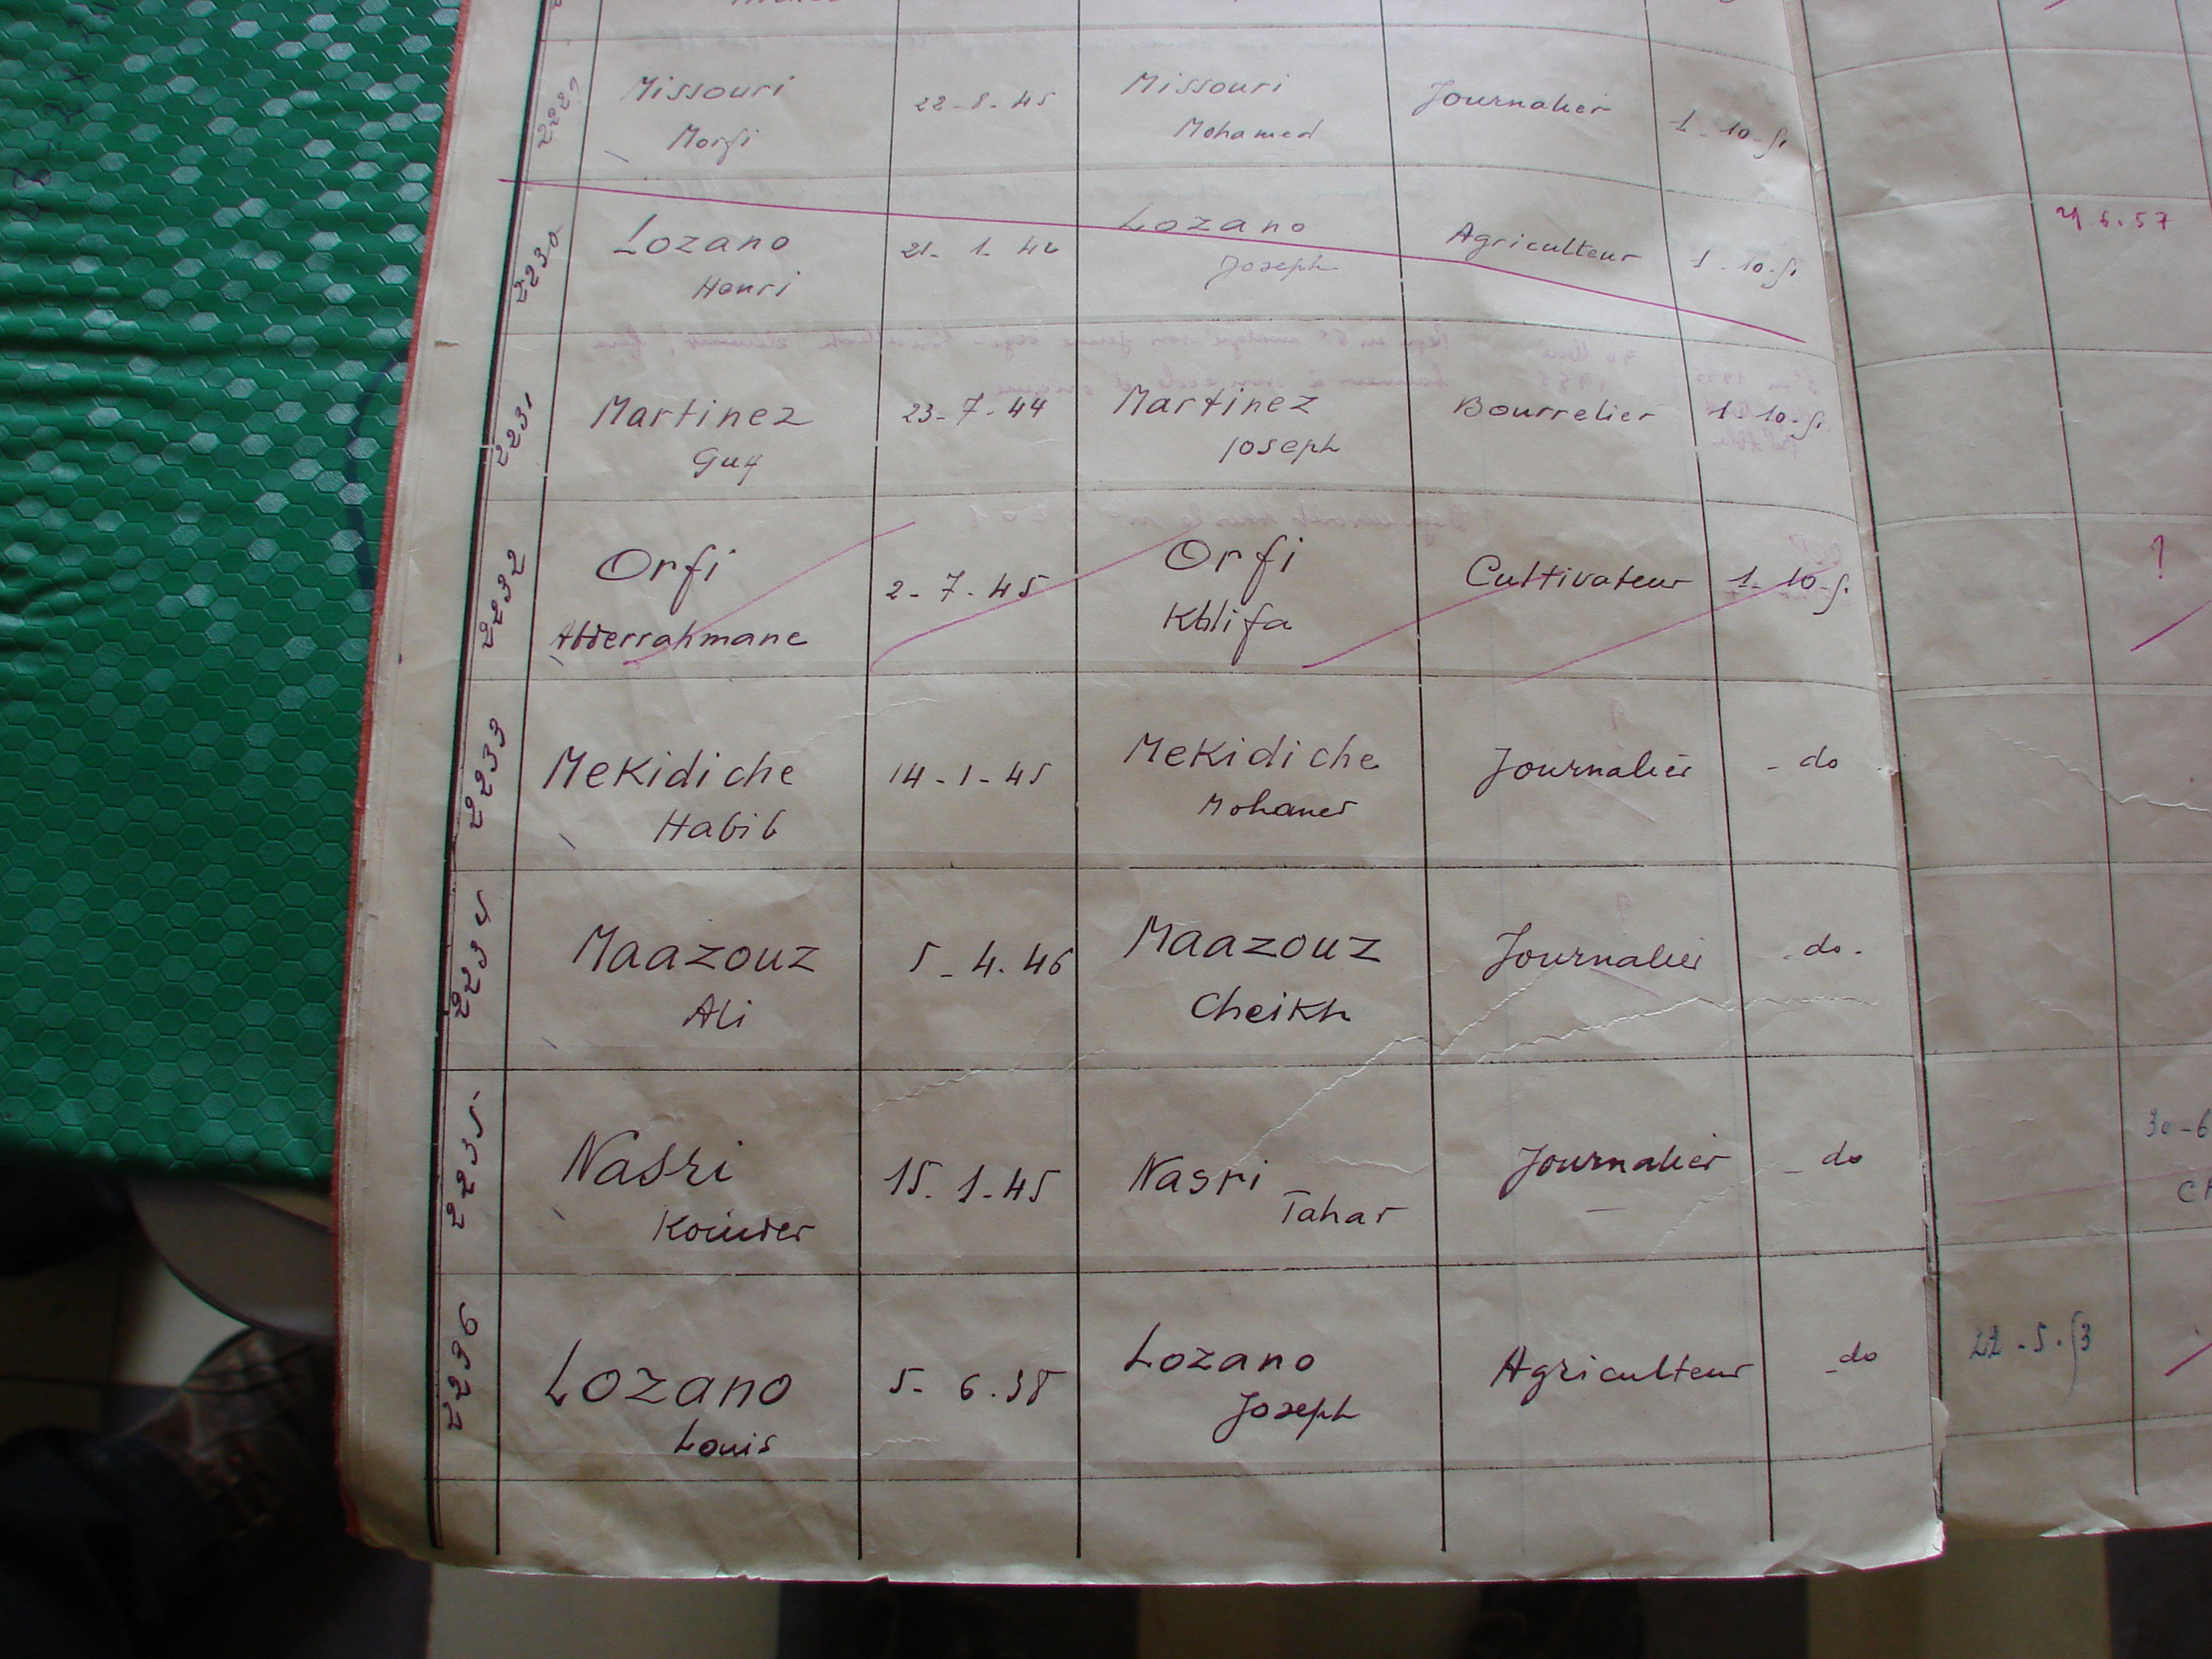 2229 Missouri 22-8-45 Missouri Journalier 1-10-51
Morsi Mohamed
2230 Lozano 21-1-42 Lozano Agriculteur 1-10-51 6.57
Henri Joseph
2231 Martinez 23-7-44 Martinez Bourrelier 1-10-51
Guy Joseph
2232 Orfi 2-7-45 Orfi Cultivateur 1-10-51 ?
Abderrahmane Khlifa
2233 Mekidiche 14-1-45 Mekidiche Journalier - do
Habib Mohamed
2234 Maazouz 5-4.46 Maazouz Journalier - do -
Ali Cheikh
2235 Nasri 15-1-45 Nasri Journalier - do 30-6
Kouider Tahar
2236 Lozano 5-6.38 Lozano Agriculteur - do 22-5.53
Louis Joseph